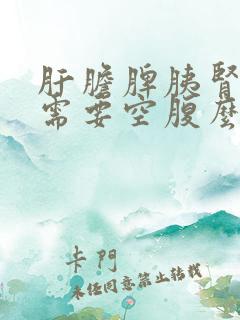 肝膽脾胰腎
需要空腹麽
卡門
未經同意禁止轉載